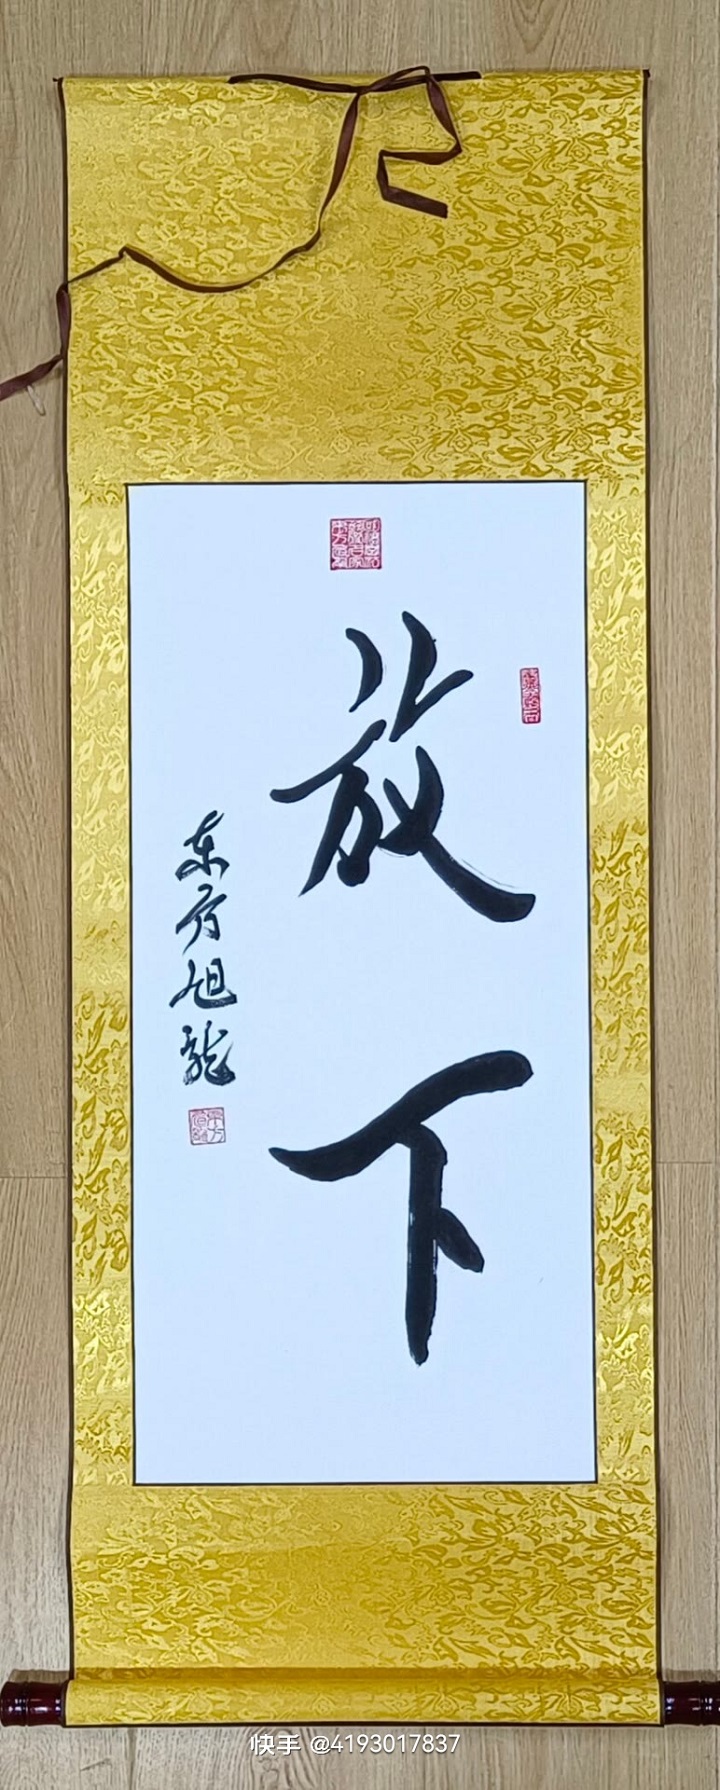 放下
东方旭龙
快手 @4193017837